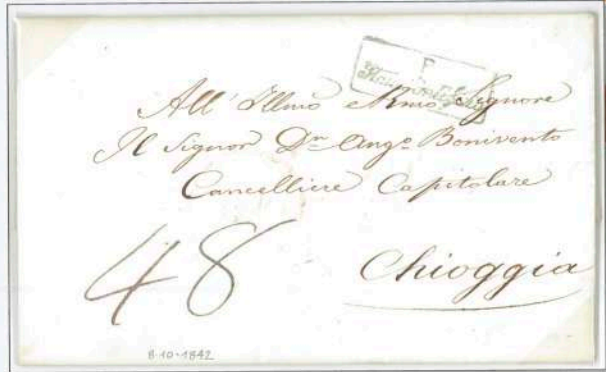 P
All' Illmo e Rmo Signore
Il Signor Dn Ango Bonivento
Cancelliere Capitolare
48
Chioggia
8-10-1842